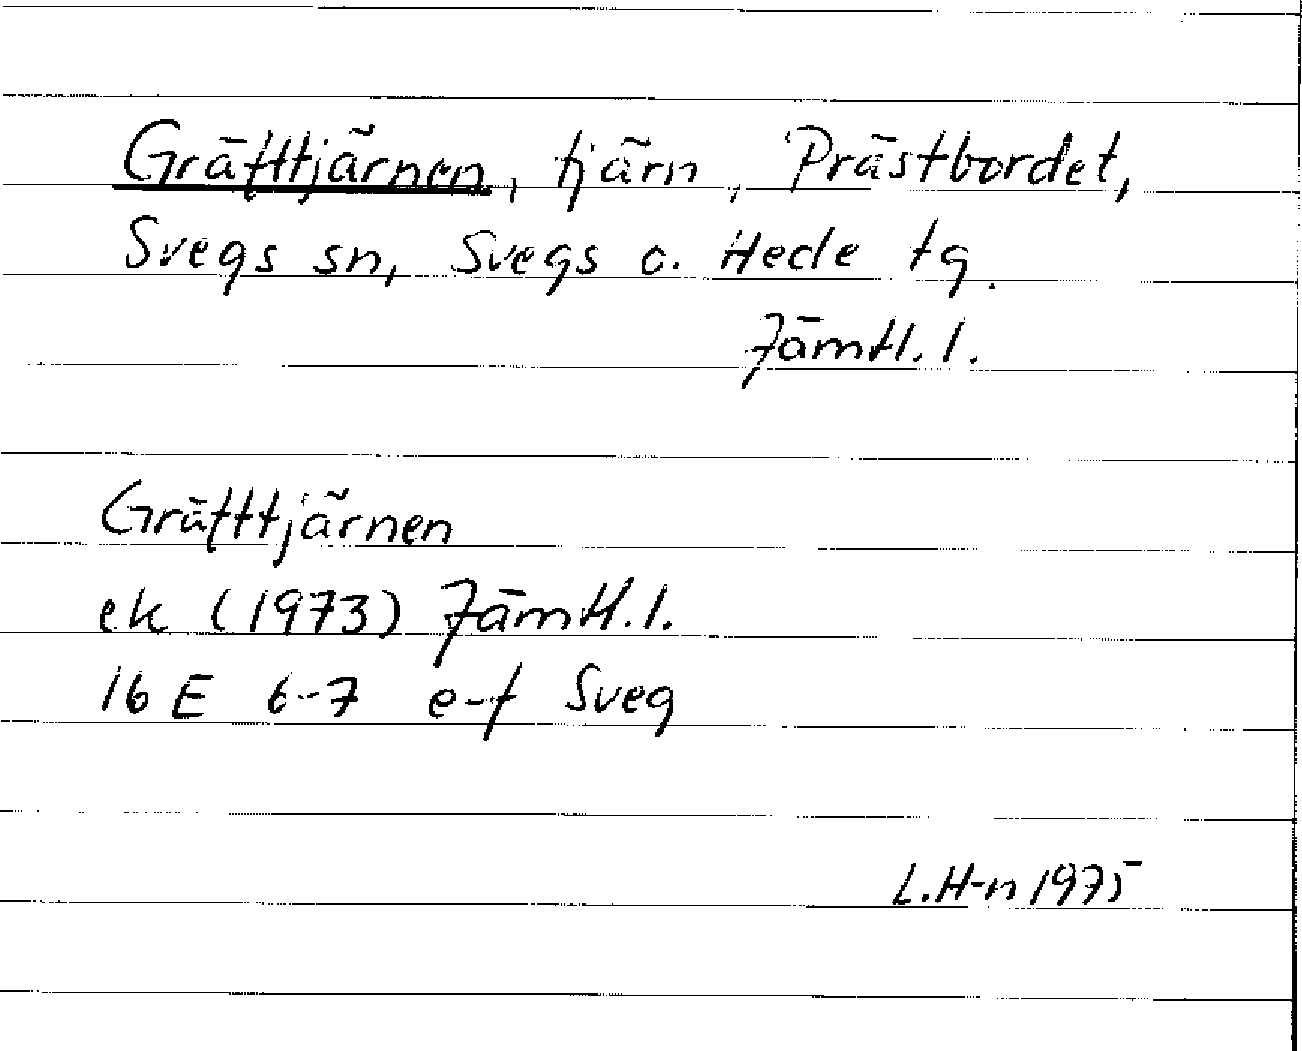 Gräfttjärnen, tjärn, Prästbordet,
Svegs sn, Svegs o. Hede tg.
Jämtl. l.
Gräfttjärnen
ek (1973) Jämtl. l.
16 E 6-7 e-f Sveg
L. H-n 1975